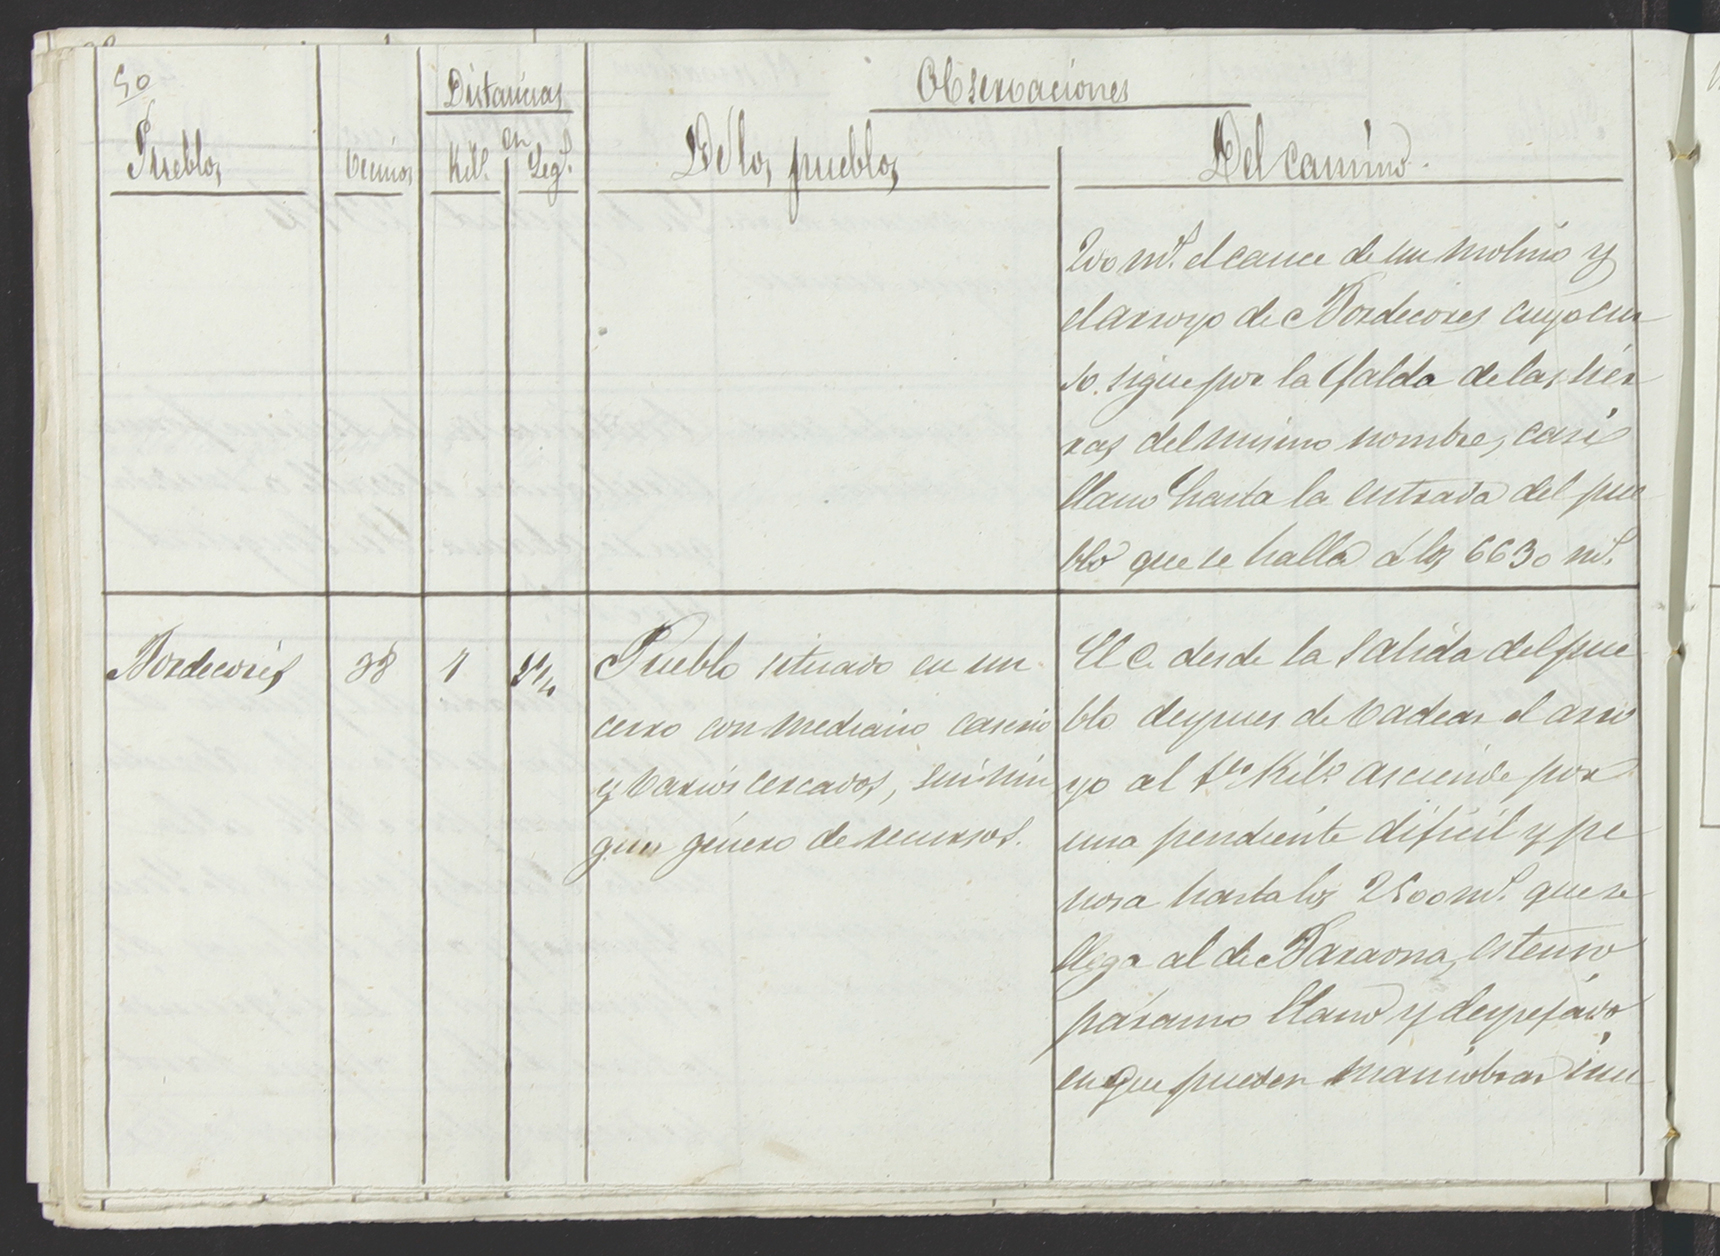 50
Distancias
Observaciones
Pueblos
Vecinos
Kils.
en
Legs.
De los pueblos
Del camino.
200 ms. el cauce de un molino y
el arroyo de Bordecorés cuyo cur
so sigue por la falda de las sier
ras del mismo nombre, casi
llano hasta la entrada del pue
blo que se halla á los 6630 ms.
Bordecorés
38
Pueblo situado en un
cerro con mediano caserio
y varios cercados, sin nin
gun género de recursos.
El C. desde la salida del pue
blo despues de vadear el arro
yo al Kilo. asciende por
una pendiente dificil y pe
nosa hasta los 2500 ms. que se
llega al de Baraona, estenso
páramo llano y despejado
en que pueden maniobrar inu